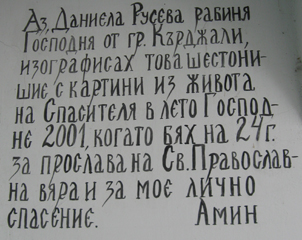 Аз, Даниела Русева рабиня
Господня от гр. Кърджали,
изографисах това шестони-
шие с картини из живота
на Спасителя в лето Господ-
не 2001, когато бях на 24г.
за прослава на Св. Православ-
на вяра и за мое лично
спасение. Амин